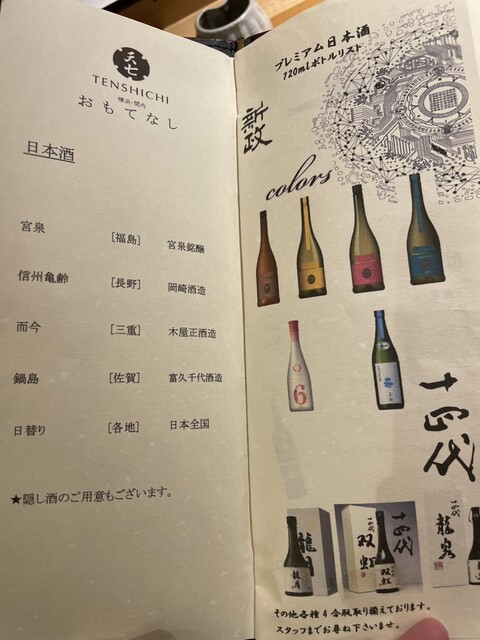 天七
TENSHICHI
横浜・関内
おもてなし
日本酒
宮泉 [福島] 宮泉銘醸
信州亀齢 [長野] 岡崎酒造
而今 [三重] 木屋正酒造
鍋島 [佐賀] 富久千代酒造
日替り [各地] 日本全国
★隠し酒のご用意もございます。
プレミアム日本酒
720mlボトルリスト
新政
colors
6
十四代
龍月
龍月
十四代
双虹
十四代
双虹
十四代
龍泉
その他各種4合瓶取り揃えております。
スタッフまでお尋ね下さいませ。